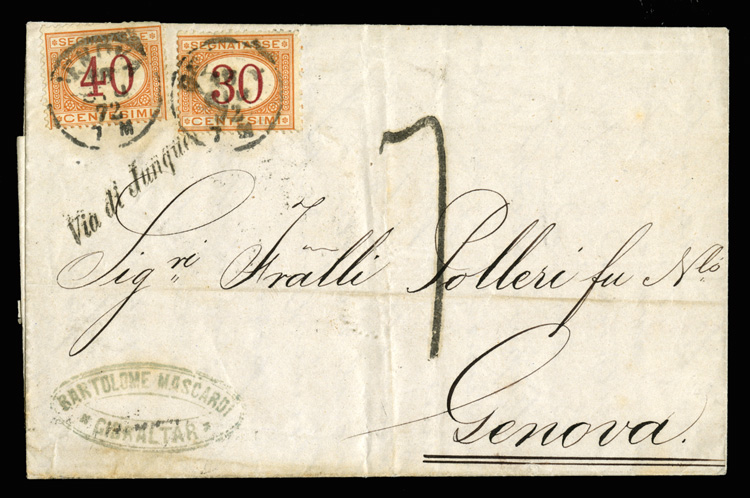 SEGNATASSE
40
CENTESIMI
SEGNATASSE
30
CENTESIMI
72
7 M
72
7 M
Via di
7
Sig.ri Fratelli Polleri fu N.lò
Genova.
BARTOLOME MASCARDI
* GIBRALTAR *